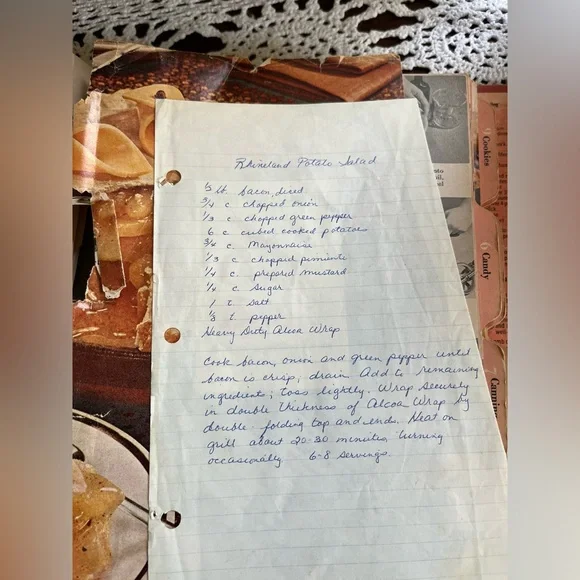 Rhineland Potato Salad
½ lb. bacon, diced
¾ c chopped onion
⅓ c chopped green pepper
6 c cubed cooked potatoes
¾ c. Mayonnaise
⅓ c. chopped pimiento
¼ c. prepared mustard
¼ c. sugar
1 t. salt
⅛ t. pepper
Heavy Duty Alcoa Wrap
Cook bacon, onion and green pepper until
bacon is crisp; drain. Add to remaining
ingredients; toss lightly. Wrap securely
in double thickness of Alcoa Wrap by
double folding top and ends. Heat on
grill about 20-30 minutes, turning
occasionally 6-8 servings.
Cookies
Candy
Canning